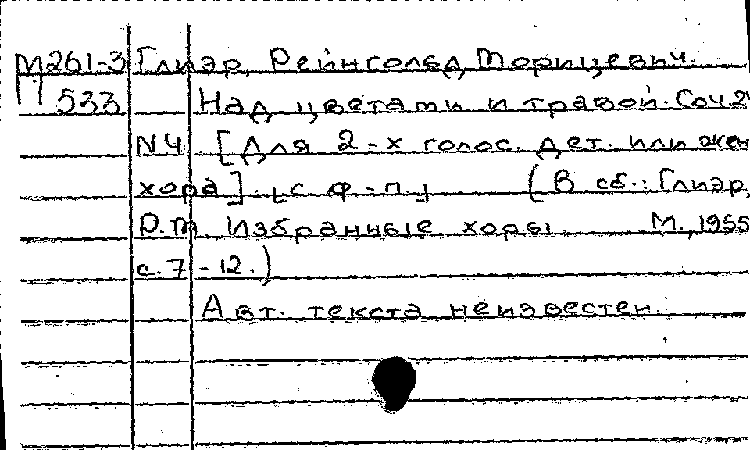 М261-3 Глиэр, Рейнгольд Морицевич.
533 Над цветами и травой. Соч. 2
N4. [Для 2-х голос. дет. или жен
хора]. [с ф-п.] (В сб.: Глиэр,
Р.М. Избранные хоры. М., 1955
с. 7-12.)
Авт. текста неизвестен.